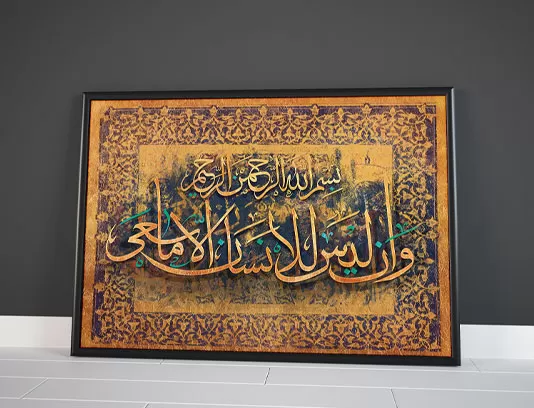 بسم الله الرحمن الرحيم
وأن ليس للإنسان إلا ما سعى